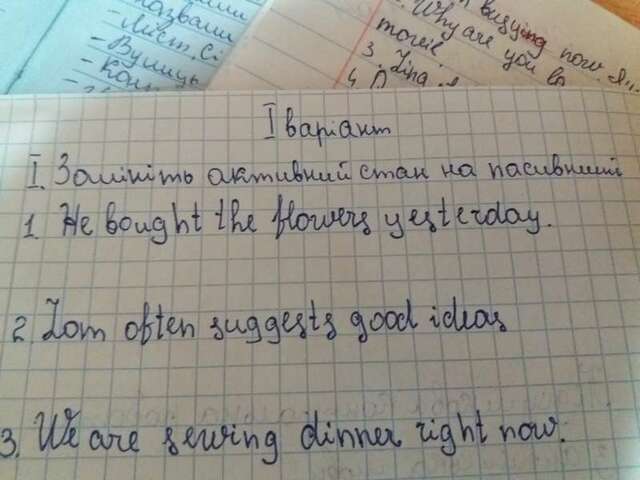 назвами
- Ліст. Сі
- Вулиць
busying now.
Why are you
movie.
3. Lina
4.
I варіант
I. Замініть активний стан на пасивний
1. He bought the flowers yesterday.
2. Tom often suggests good ideas
3. We are sewing dinner right now.